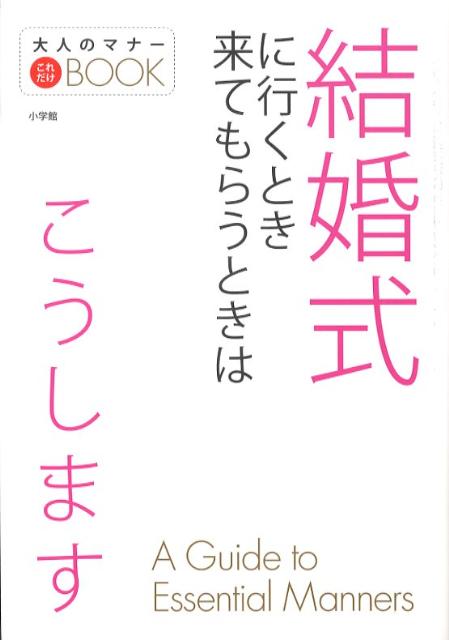 大人のマナー
これ
だけ
BOOK
小学館
結婚式
に行くとき
来てもらうときは
こうします
A Guide to
Essential Manners